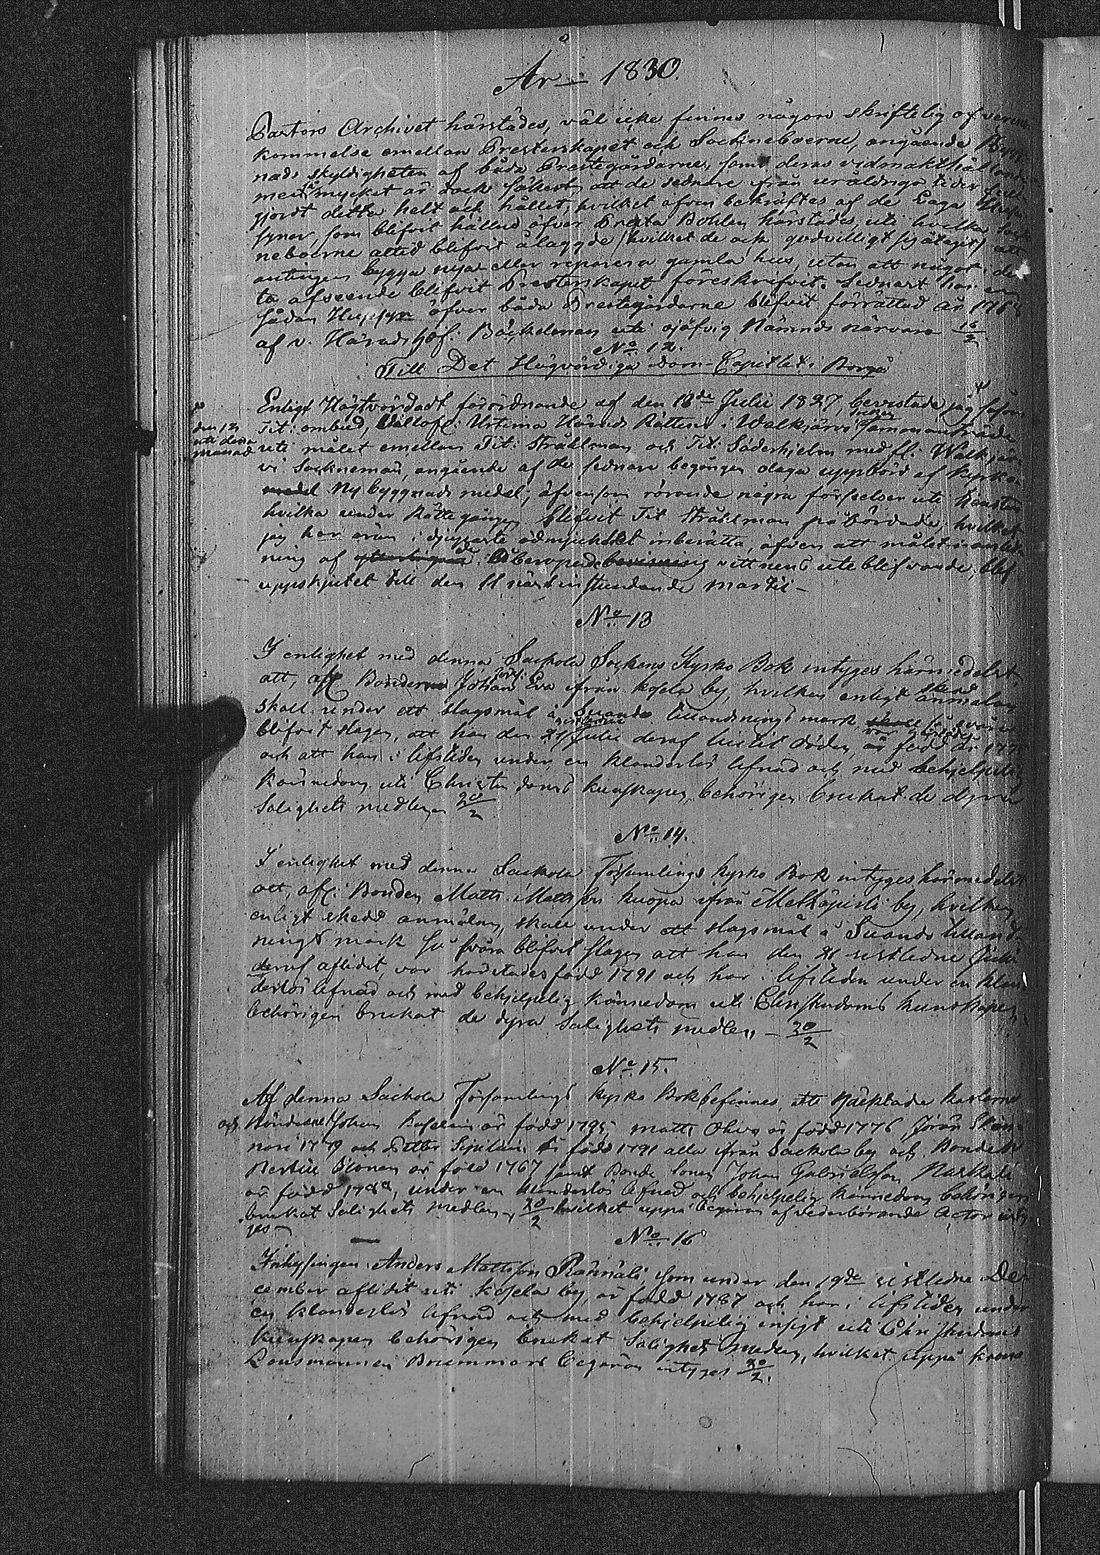 År 1830.
Pastors Archivet härstädes, väl icke finnes någon skriftelig öfverens
kommelse emellan Presterskapet och Sockneboerne, angående Bygg
nads skyldigheten af båda Prestegårdarne, samt deras vidmakthållande
men mycket är dock säkert, att de sednare från uråldriga tider
gjort detta helt och hållet, hvilket äfven bekräftas af de Laga Huse
syner, som blifvit hållne öfver Presta Bohlen härstädes, uti hvilka Sock
neboerne alltid blifvit ålaggde (hvilket de ock godvilligt) att
antingen bygga nya eller reparera gamla hus, utan att något i det
ta afseende blifvit Presterskapet föreskrifvit. Sednast har en
sådan Husesyn öfver båda Prestegårdarne blifvit förrättad år 176
af v. Häradshöf. Bäckelman uti ojäfvig Nämnds närvaro
No 12.
Till Det Högvördiga Dom-Capitlet i Borgå
Enligt Högtvördadt förordnande af den 18de Julii 1827, bevistade jag såsom
Tit: ombud, Vällofl: Urtima Härads Rättens i Walkjärvi sammanträde
den 12
uti denna
månad
uti målet emellan Tit: Stråhlman och Tit: Söderhjelm med fl: Walkjär
vi Socknemän, angående af de sednare begången olaga uppbörd af Kyrko
medel Nybyggnads medel, äfvensom rörande några förseelser uti
hvilka under Rättegången blifvit Tit Stråhlman påbördade, hvilket
jag har äran i djupaste ödmjukhet inberätta, äfven att målet i anled
ning af åberopade vittnens uteblifvande, blef
uppskjutet till den 11 nästinstundande Martii
No 13
I enlighet med denna Sackola Sockens Kyrko Bok intyges härmedelst
att, afl. Bonden Johan Eva ifrån Kofela by, hvilken enligt skedd anmälan
skall under ett slagsmål å Suando tillandnings mark så svåra
blifvit slagen, att han den 21 Julii deraf tillit döden, är född år 177
och att han i lifstiden under en klanderlös lefnad och med behjelpelig
kännedom uti Christendoms kunskapen, behörigen brukat de dyra
Salighets medlen 20/2
No 14.
I enlighet med denna Sackola Församlings Kyrko Bok intyges härmedelst
att afl. Bonden Matts Mattsson Kuopa ifrån by, hvilken
enligt skedd anmälan, skall under ett slagsmål å Suando tilland
nings mark så svåra blifvit slagen att han den 21 sistledne Julii
deraf aflidit, var härstädes född 1791 och har i lifstiden under en klan
derlös lefnad och med behjelpelig kännedom uti Christendoms kunskapen,
behörigen brukat de dyra Salighets medlen, 20/2
No 15.
Af denna Sackola Församlings Kyrko Bok befinnes, att Karlarne
och Johan är född 1795 Matts är född 1776, Jöran
nori 1779 och Petter är född 1791 alla ifrån Sackola by och Bonden
är född 1767 samt Bonde Sonen Johan Gabrielsson
är född, under en klanderlös lefnad och behjelpelig kännedom behörigen
brukat Salighets medlen, 20/2 hvilket uppå begäran af vederbörande Actor inty
ges
No 16
Inhysingen Anders Mattsson, som under den 19de sistledne De
cember aflidit uti Kofela by, är född 1787 och har i lifstiden under
en klanderlös lefnad och med behjelpelig insigt uti Christendoms
kunskapen behörigen brukat Salighets medlen, hvilket uppå krono
Länsmannen Brummers begäran intyges 20/2.